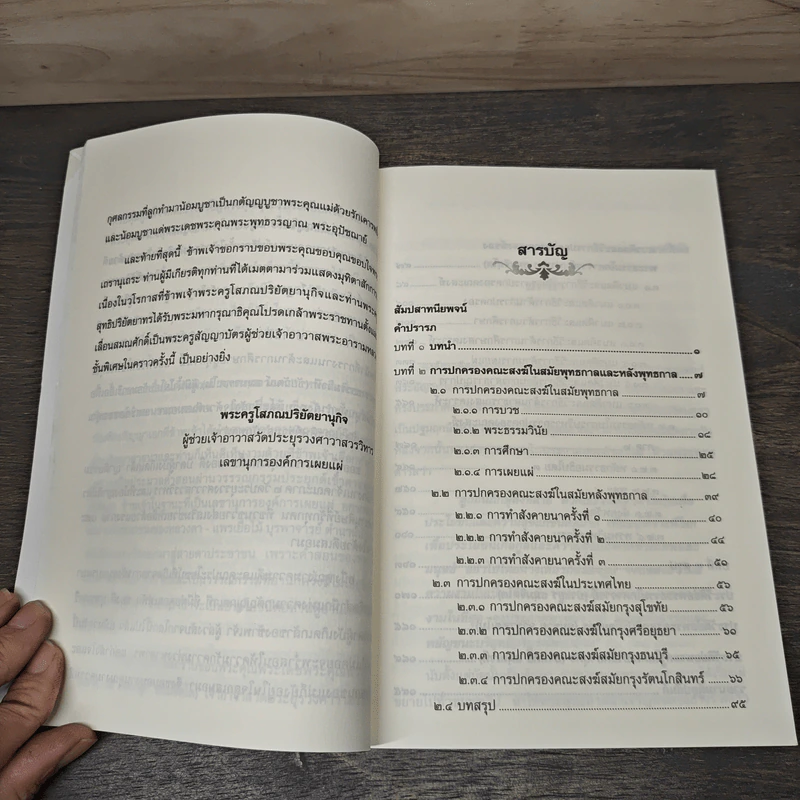 กุศลกรรมที่ลูกทำมาน้อมบูชาเป็นกตัญญูบูชาพระคุณแม่ด้วยรักเคารพ
และน้อมบูชาแด่พระเดชพระคุณพระพุทธวรญาณ พระอุปัชฌาย์
และท้ายที่สุดนี้ ข้าพเจ้าขอกราบขอบพระคุณขอบคุณขอบใจ
เถรานุเถระ ท่านผู้มีเกียรติทุกท่านที่ได้เมตตามาร่วมแสดงมุทิตาสักการะ
เนื่องในวโรกาสที่ข้าพเจ้าพระครูโสภณปริยัตยานุกิจและท่านพระ
สุทธิปริยัตยาทรได้รับพระมหากรุณาธิคุณโปรดเกล้าฯ พระราชทานตั้ง
เลื่อนสมณศักดิ์เป็นพระครูสัญญาบัตรผู้ช่วยเจ้าอาวาสพระอารามหลวง
ชั้นพิเศษในคราวครั้งนี้ เป็นอย่างยิ่ง
พระครูโสภณปริยัตยานุกิจ
ผู้ช่วยเจ้าอาวาสวัดประยุรวงศาวาสวรวิหาร
เลขานุการองค์การเผยแผ่
สารบัญ
สัมปสาทนียพจน์
คำปรารภ
บทที่ ๑ บทนำ ๑
บทที่ ๒ การปกครองคณะสงฆ์ในสมัยพุทธกาลและหลังพุทธกาล ๗
๒.๑ การปกครองคณะสงฆ์ในสมัยพุทธกาล ๗
๒.๑.๑ การบวช ๑๐
๒.๑.๒ พระธรรมวินัย ๑๔
๒.๑.๓ การศึกษา ๒๕
๒.๑.๔ การเผยแผ่ ๒๘
๒.๒ การปกครองคณะสงฆ์ในสมัยหลังพุทธกาล ๓๙
๒.๒.๑ การทำสังคายนาครั้งที่ ๑ ๔๐
๒.๒.๒ การทำสังคายนาครั้งที่ ๒ ๔๔
๒.๒.๓ การทำสังคายนาครั้งที่ ๓ ๕๑
๒.๓ การปกครองคณะสงฆ์ในประเทศไทย ๕๖
๒.๓.๑ การปกครองคณะสงฆ์สมัยกรุงสุโขทัย ๕๖
๒.๓.๒ การปกครองคณะสงฆ์ในกรุงศรีอยุธยา ๖๑
๒.๓.๓ การปกครองคณะสงฆ์สมัยกรุงธนบุรี ๖๕
๒.๓.๔ การปกครองคณะสงฆ์สมัยกรุงรัตนโกสินทร์ ๖๖
๒.๔ บทสรุป ๙๕